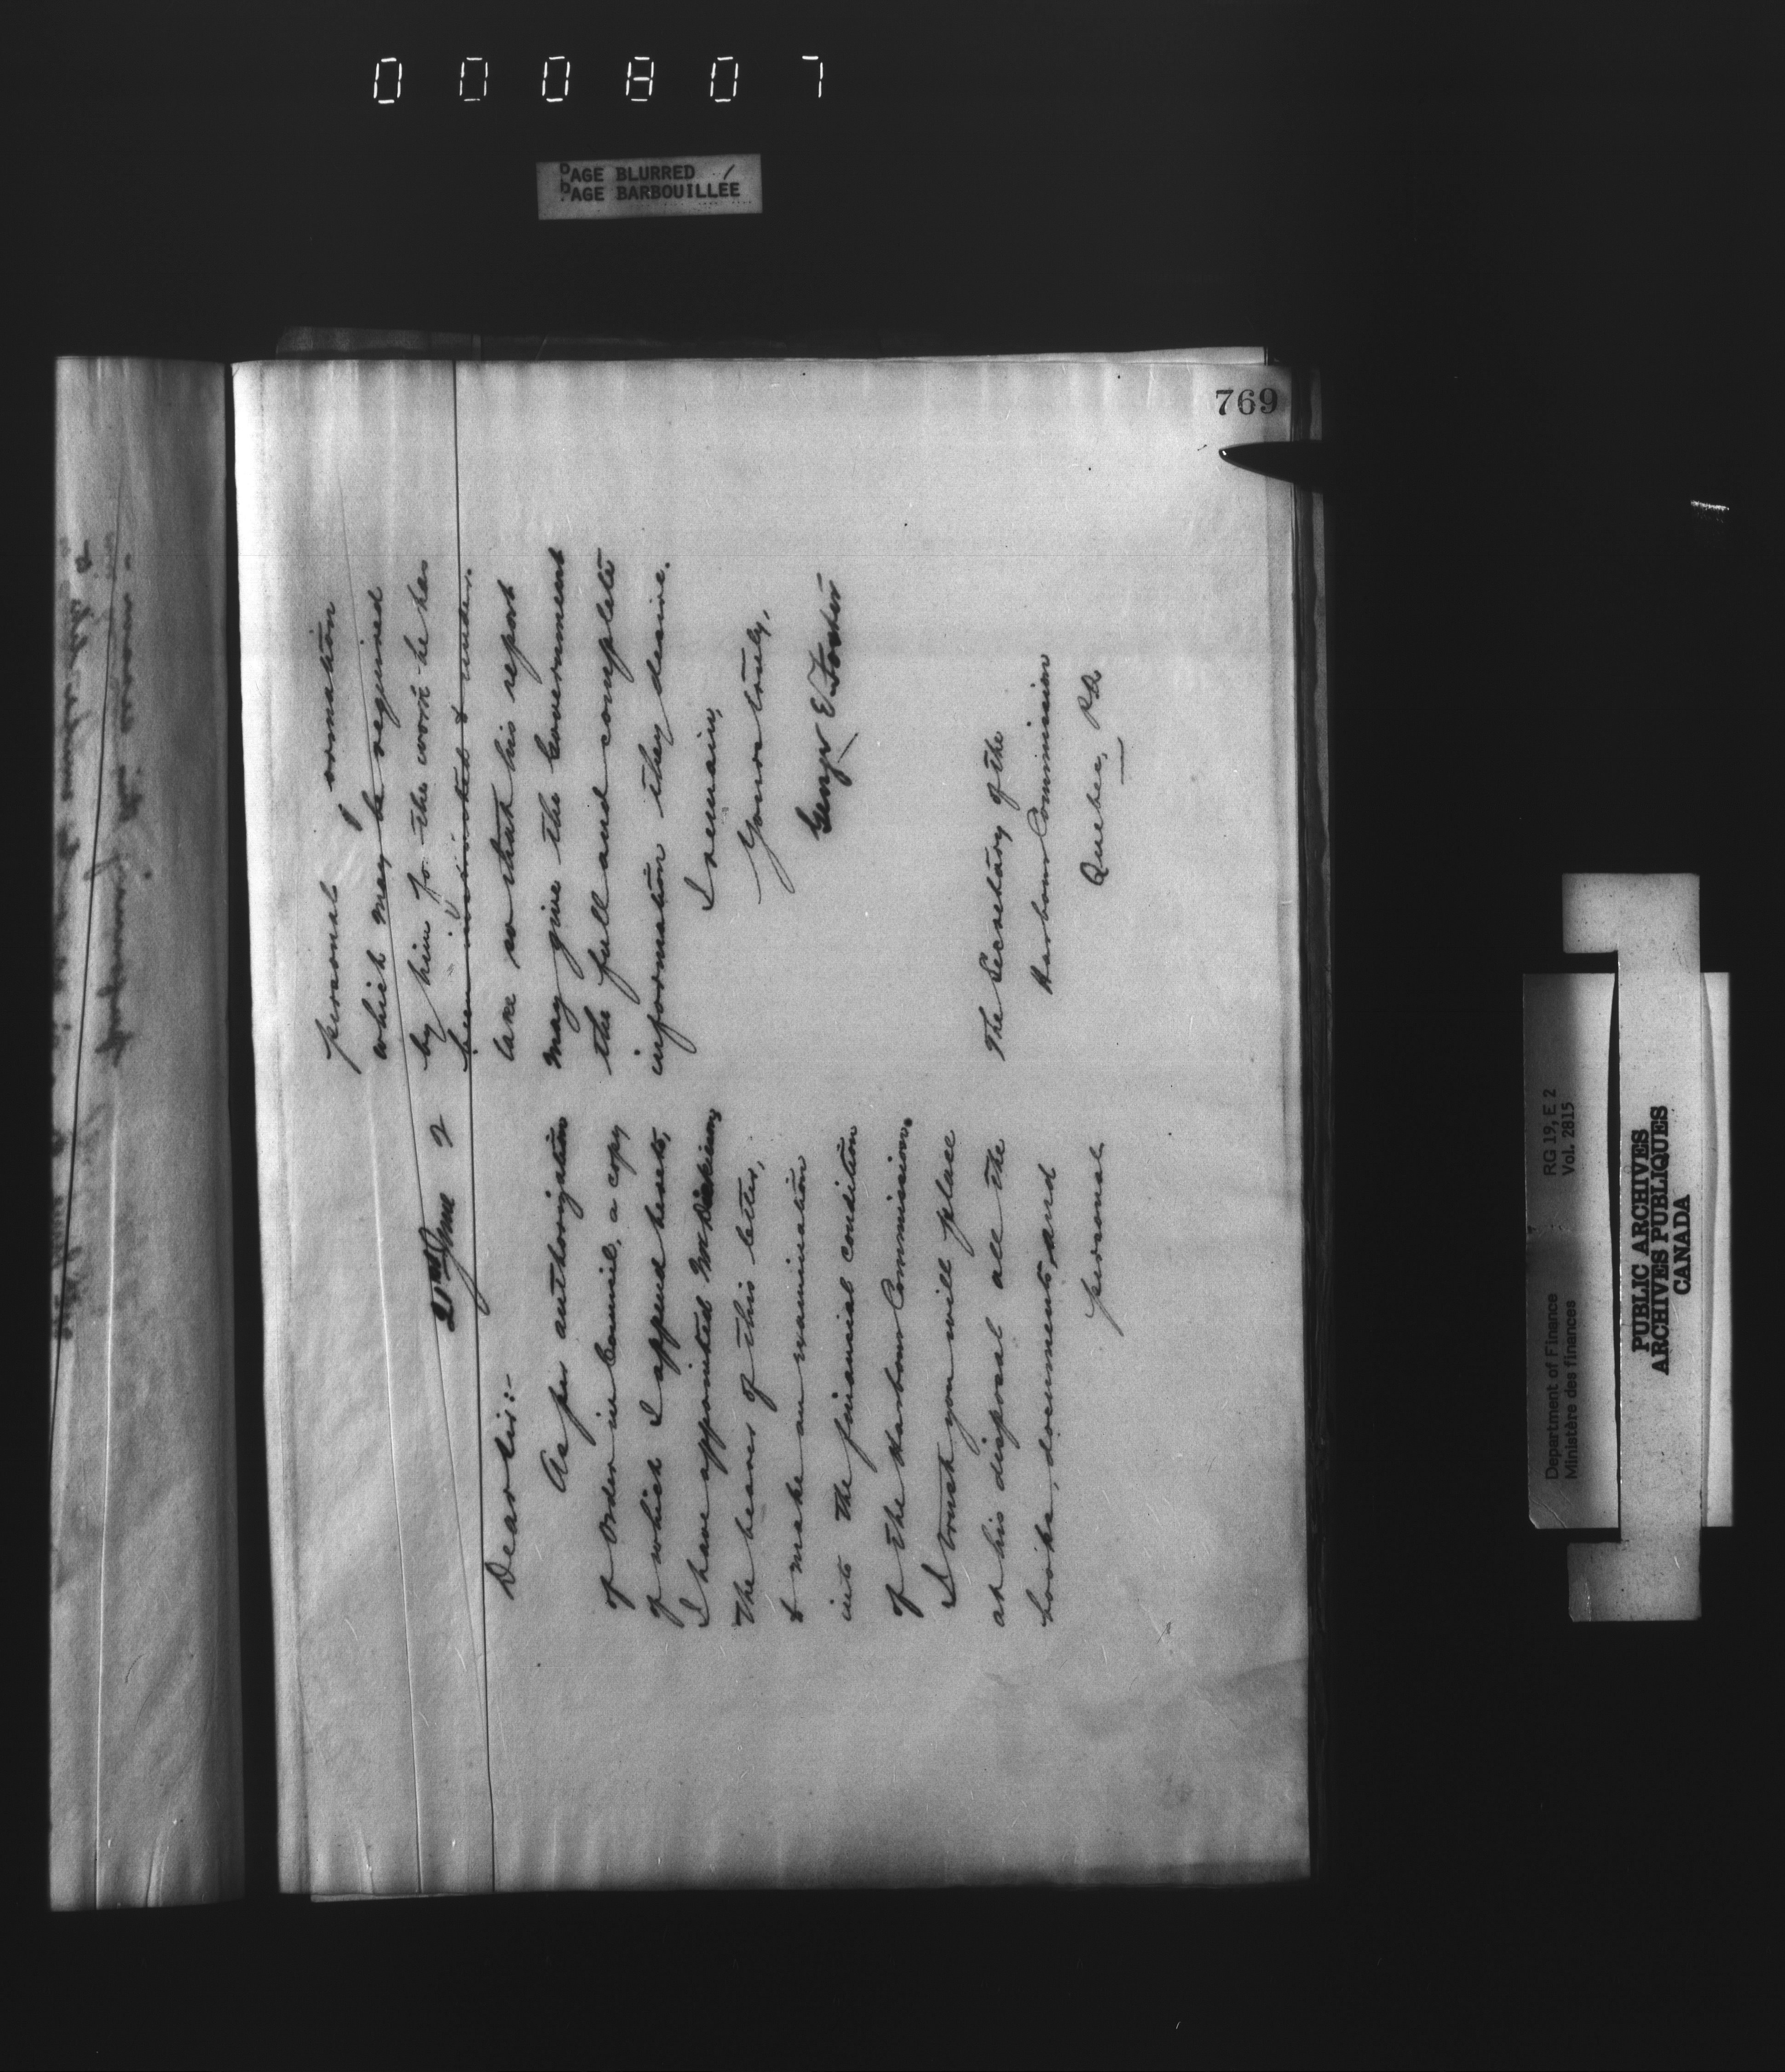 000807
PAGE BLURRED
PAGE BARBOUILLÉE
769
21st June 2
Dear Sir:-
As per authorization
of Order in Council, a copy
of which I append hereto,
I have appointed Mr
the bearer of this letter,
to make an examination
into the financial condition
of the Harbour Commission.
I trust you will place
at his disposal all the
books, documents, and
personal
personal ormation
which may be required
by him for the work he has
been instructed to under-
take so that his report
may give the Government
the full and complete
information they desire.
I remain,
Yours truly,
George E Foster
The Secretary of the
Harbour Commission
Quebec, P.Q.
Department of Finance
Ministère des finances
RG 19, E 2
Vol. 2815
PUBLIC ARCHIVES
ARCHIVES PUBLIQUES
CANADA